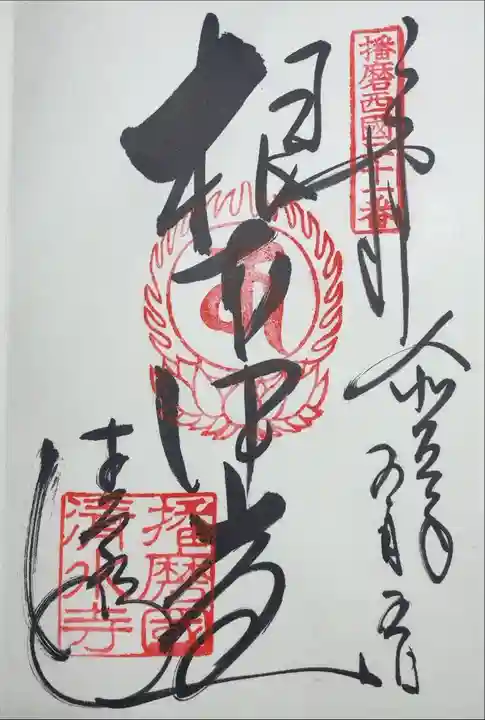 播磨西國二十一番
奉拝
令和五年五月五日
根本中堂
播磨國
清水寺
清水寺